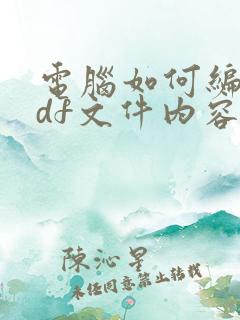 電腦如何編
df文件內容
陳沁星
未經同意禁止轉載